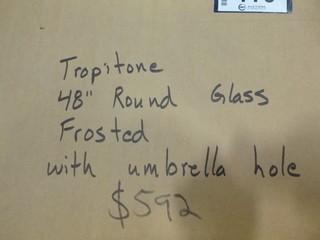 Tropitone
48" Round Glass
Frosted
with umbrella hole
$592